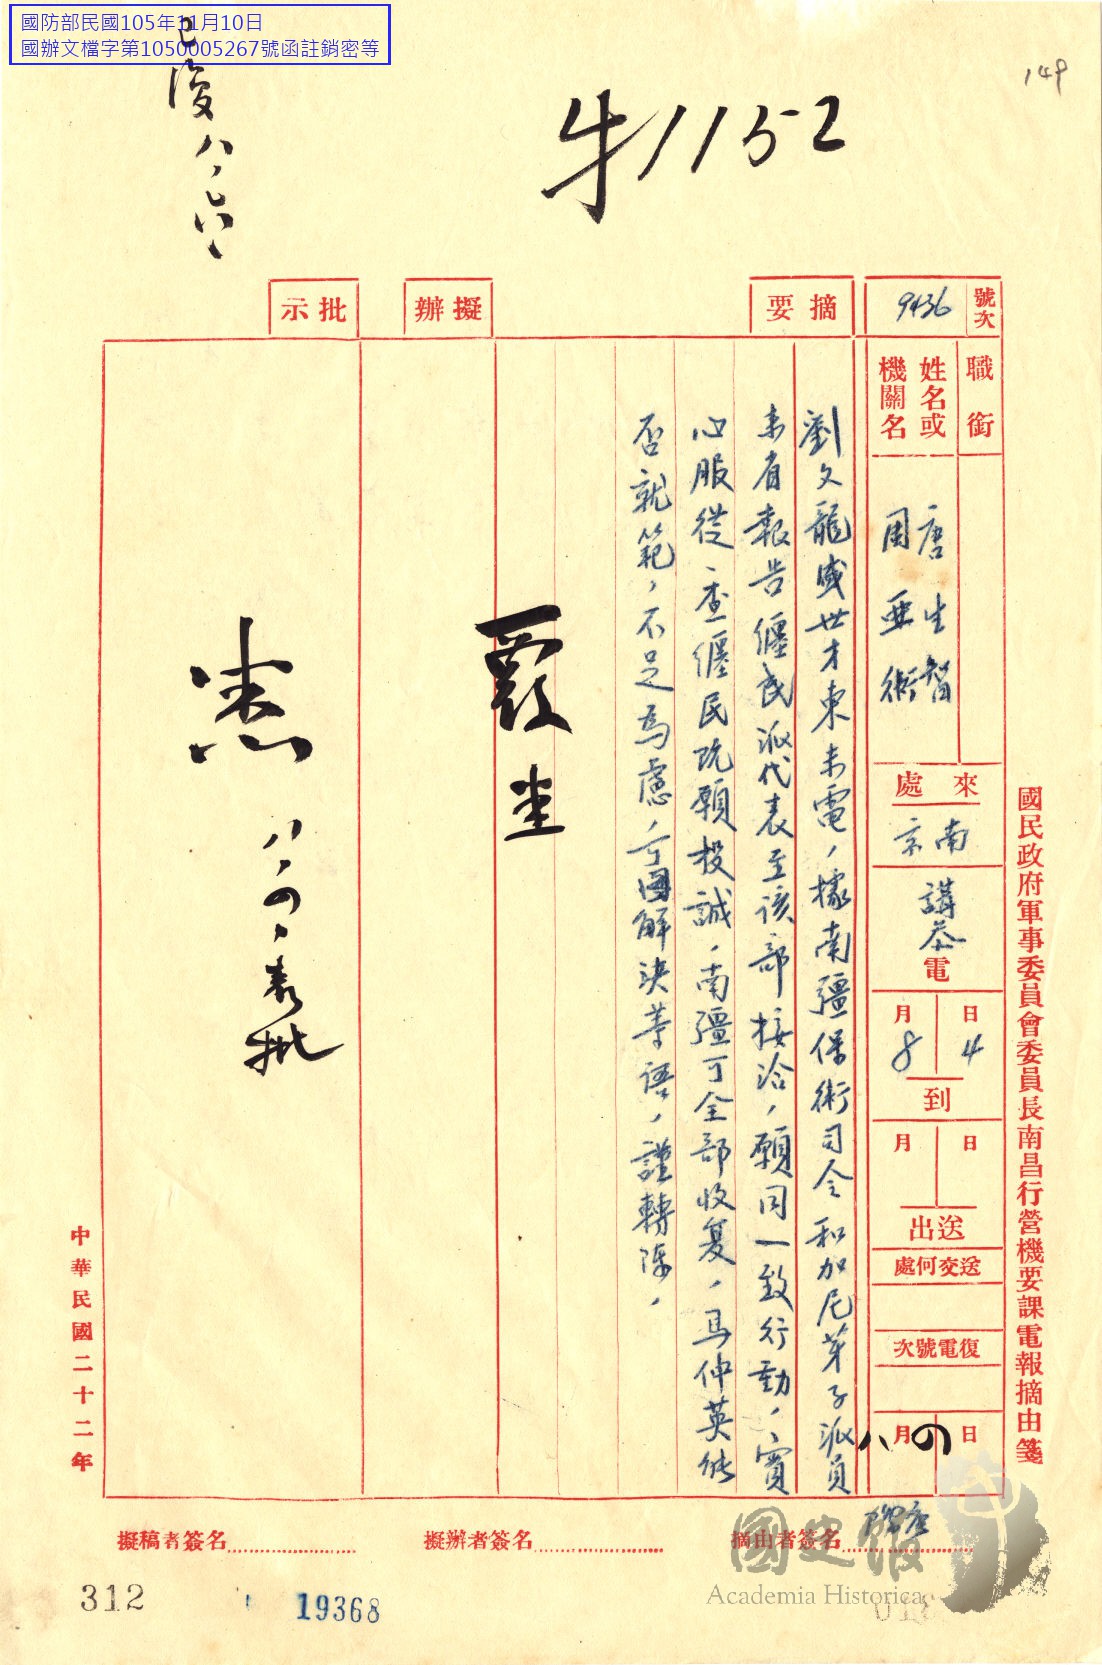 國防部民國105年11月10日
國辦文檔字第1050005267號函註銷密等
已復八、六
149
牛1152
號次
9436
摘要
擬辦
批示
職銜
姓名或
機關名
唐生智
周亞衛
來處
南京
講
電
4日
8月
到
日
月
送出
送交何處
復電號次
四日
八月
國民政府軍事委員會委員長南昌行營機要課電報摘由箋
劉文龍盛世才東未電、據南疆保衛司令和加尼芽子派員
來省報告纏民派代表至該部接洽、願同一致行動、實
心服從、查纏民既願投誠、南疆可全部收復、馬仲英能
否就範、不足為慮、可圖解決等語、謹轉陳、
覆
悉
八、四、表批
中華民國二十二年
摘由者簽名
擬辦者簽名
擬稿者簽名
312
19368
國史館
Academia Historica